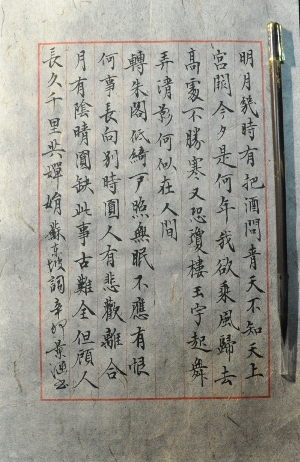 明月幾時有把酒問青天不知天上
宮闕今夕是何年我欲乘風歸去
高處不勝寒又恐瓊樓玉宇起舞
弄清影何似在人間
轉朱閣低綺戶照無眠不應有恨
何事長向別時圓人有悲歡離合
月有陰晴圓缺此事古難全但願人
長久千里共嬋娟蘇東坡詞辛卯